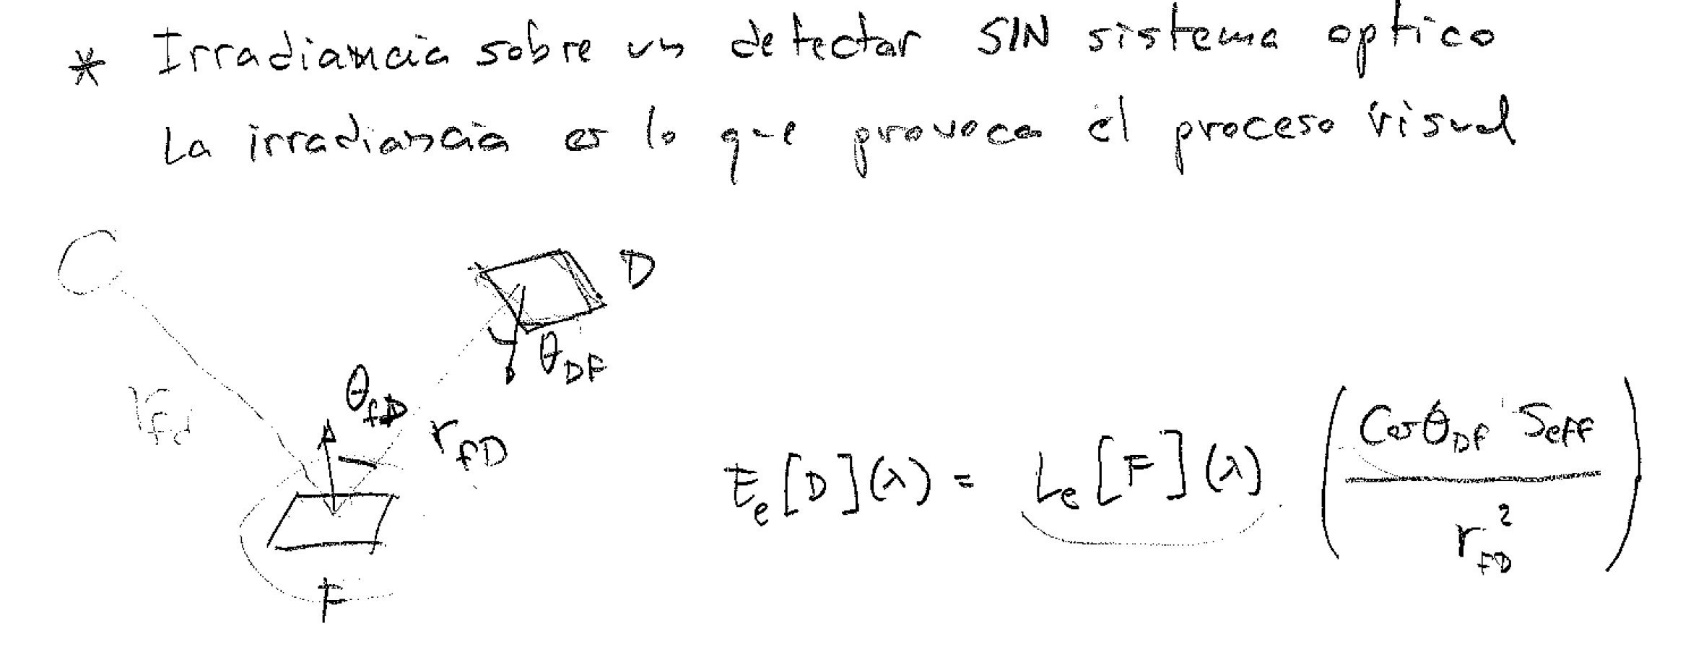 * Irradiancia sobre un detector SIN sistema optico
La irradiancia es lo que provoca el proceso visual
D
θ_DF
θ_fD
r_fD
E_e[D](λ) = L_e[F](λ) · (Cos θ_DF · S_eff / r_FD²)
F